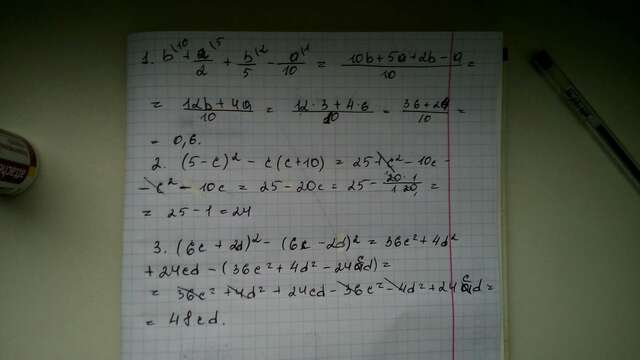 1. b\10 + a/2\5 + b/5\2 - a/10\1 = (10b+5a+2b-a)/10 =
= (12b+4a)/10 = (12·3+4·6)/10 = /10 =
= 0,6.
2. (5-c)² - c(c+10) = 25+c²-10c-
-c²-10c = 25-20c = 25 - (20·1)/(1·20) =
= 25-1=24
3. (6c+2d)² - (6c-2d)² = 36c²+4d²
+24cd-(36c²+4d²-24cd)=
= 36c²+4d²+24cd-36c²-4d²+24cd=
= 48cd.